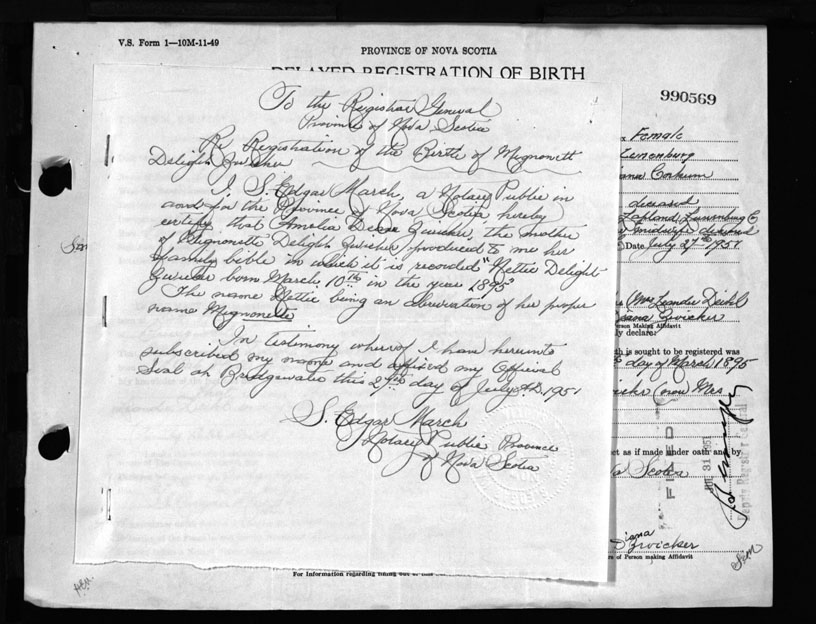 V.S. Form 1—10M-11-49
PROVINCE OF NOVA SCOTIA
DELAYED REGISTRATION OF BIRTH
990569
To the Registrar General
Province of Nova Scotia
Re Registration of the Birth of Mignonett
Delight Zwicker
I, S. Edgar March, a Notary Public in
and for the Province of Nova Scotia hereby
certify that Amelia Zwicker, the mother
of Mignonette Delight Zwicker, produced to me her
family bible in which it is recorded "Nettie Delight
Zwicker born March 10th in the year 1895"
The name Nettie being an of her proper
name Mignonette
In testimony whereof I have hereunto
subscribed my name and affixed my Official
Seal at Bridgewater this 27th day of July A.D. 1951
S. Edgar March
Notary Public Province
of Nova Scotia
Female
Lunenburg
Corkum
deceased
Lapland, Lunenburg Co
midwife deceased
Date July 27th 1951
Mrs Leander Deihl
Zwicker
Person Making Affidavit
y declare:
th is sought to be registered was
day of March 1895
(now Mrs.
ct as if made under oath and by
Scotia
FILED
31 1951
Diana
Zwicker
re of Person making Affidavit
For Information regarding filling out of